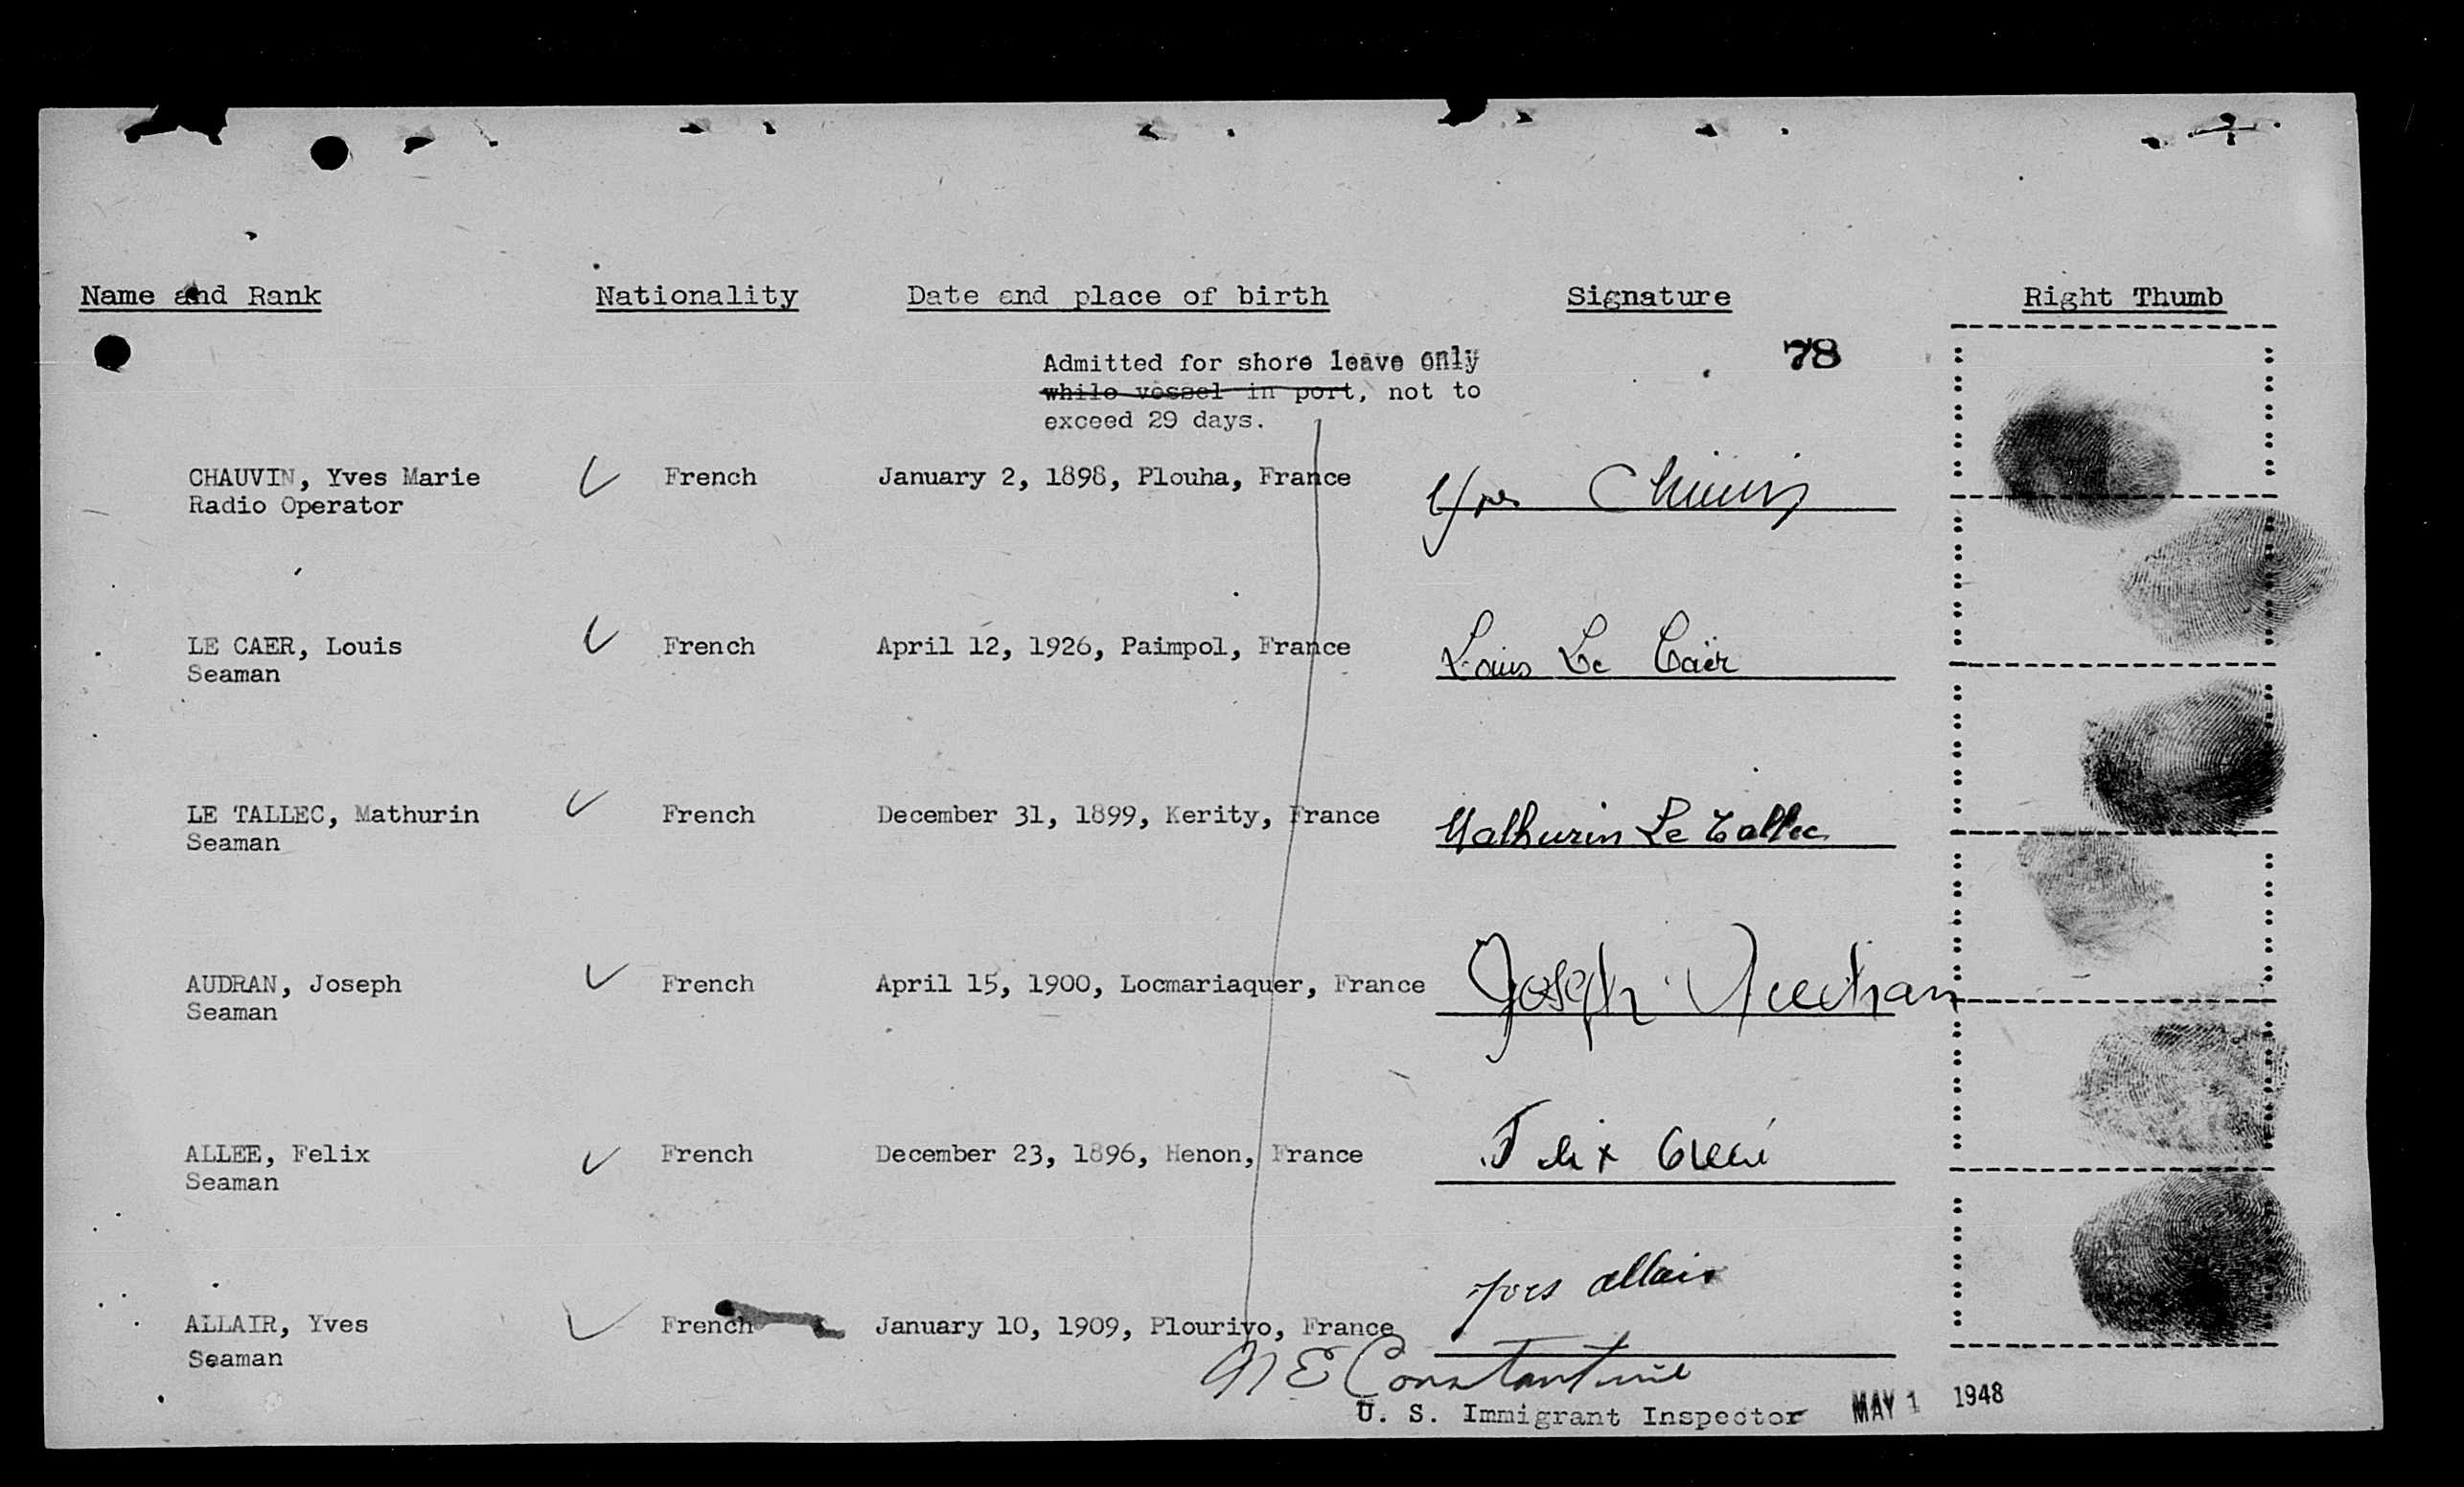 Name and Rank Nationality Date and place of birth Signature Right Thumb
Admitted for shore leave only 78
while vessel in port, not to
exceed 29 days.
CHAUVIN, Yves Marie French January 2, 1898, Plouha, France Yves Chauvin
Radio Operator
LE CAER, Louis French April 12, 1926, Paimpol, France Louis Le Caër
Seaman
LE TALLEC, Mathurin French December 31, 1899, Kerity, France Mathurin Le Tallec
Seaman
AUDRAN, Joseph French April 15, 1900, Locmariaquer, France Joseph Audran
Seaman
ALLEE, Felix French December 23, 1896, Henon, France Felix
Seaman
yves allair
ALLAIR, Yves French January 10, 1909, Plourivo, France
Seaman
U. S. Immigrant Inspector MAY 1 1948